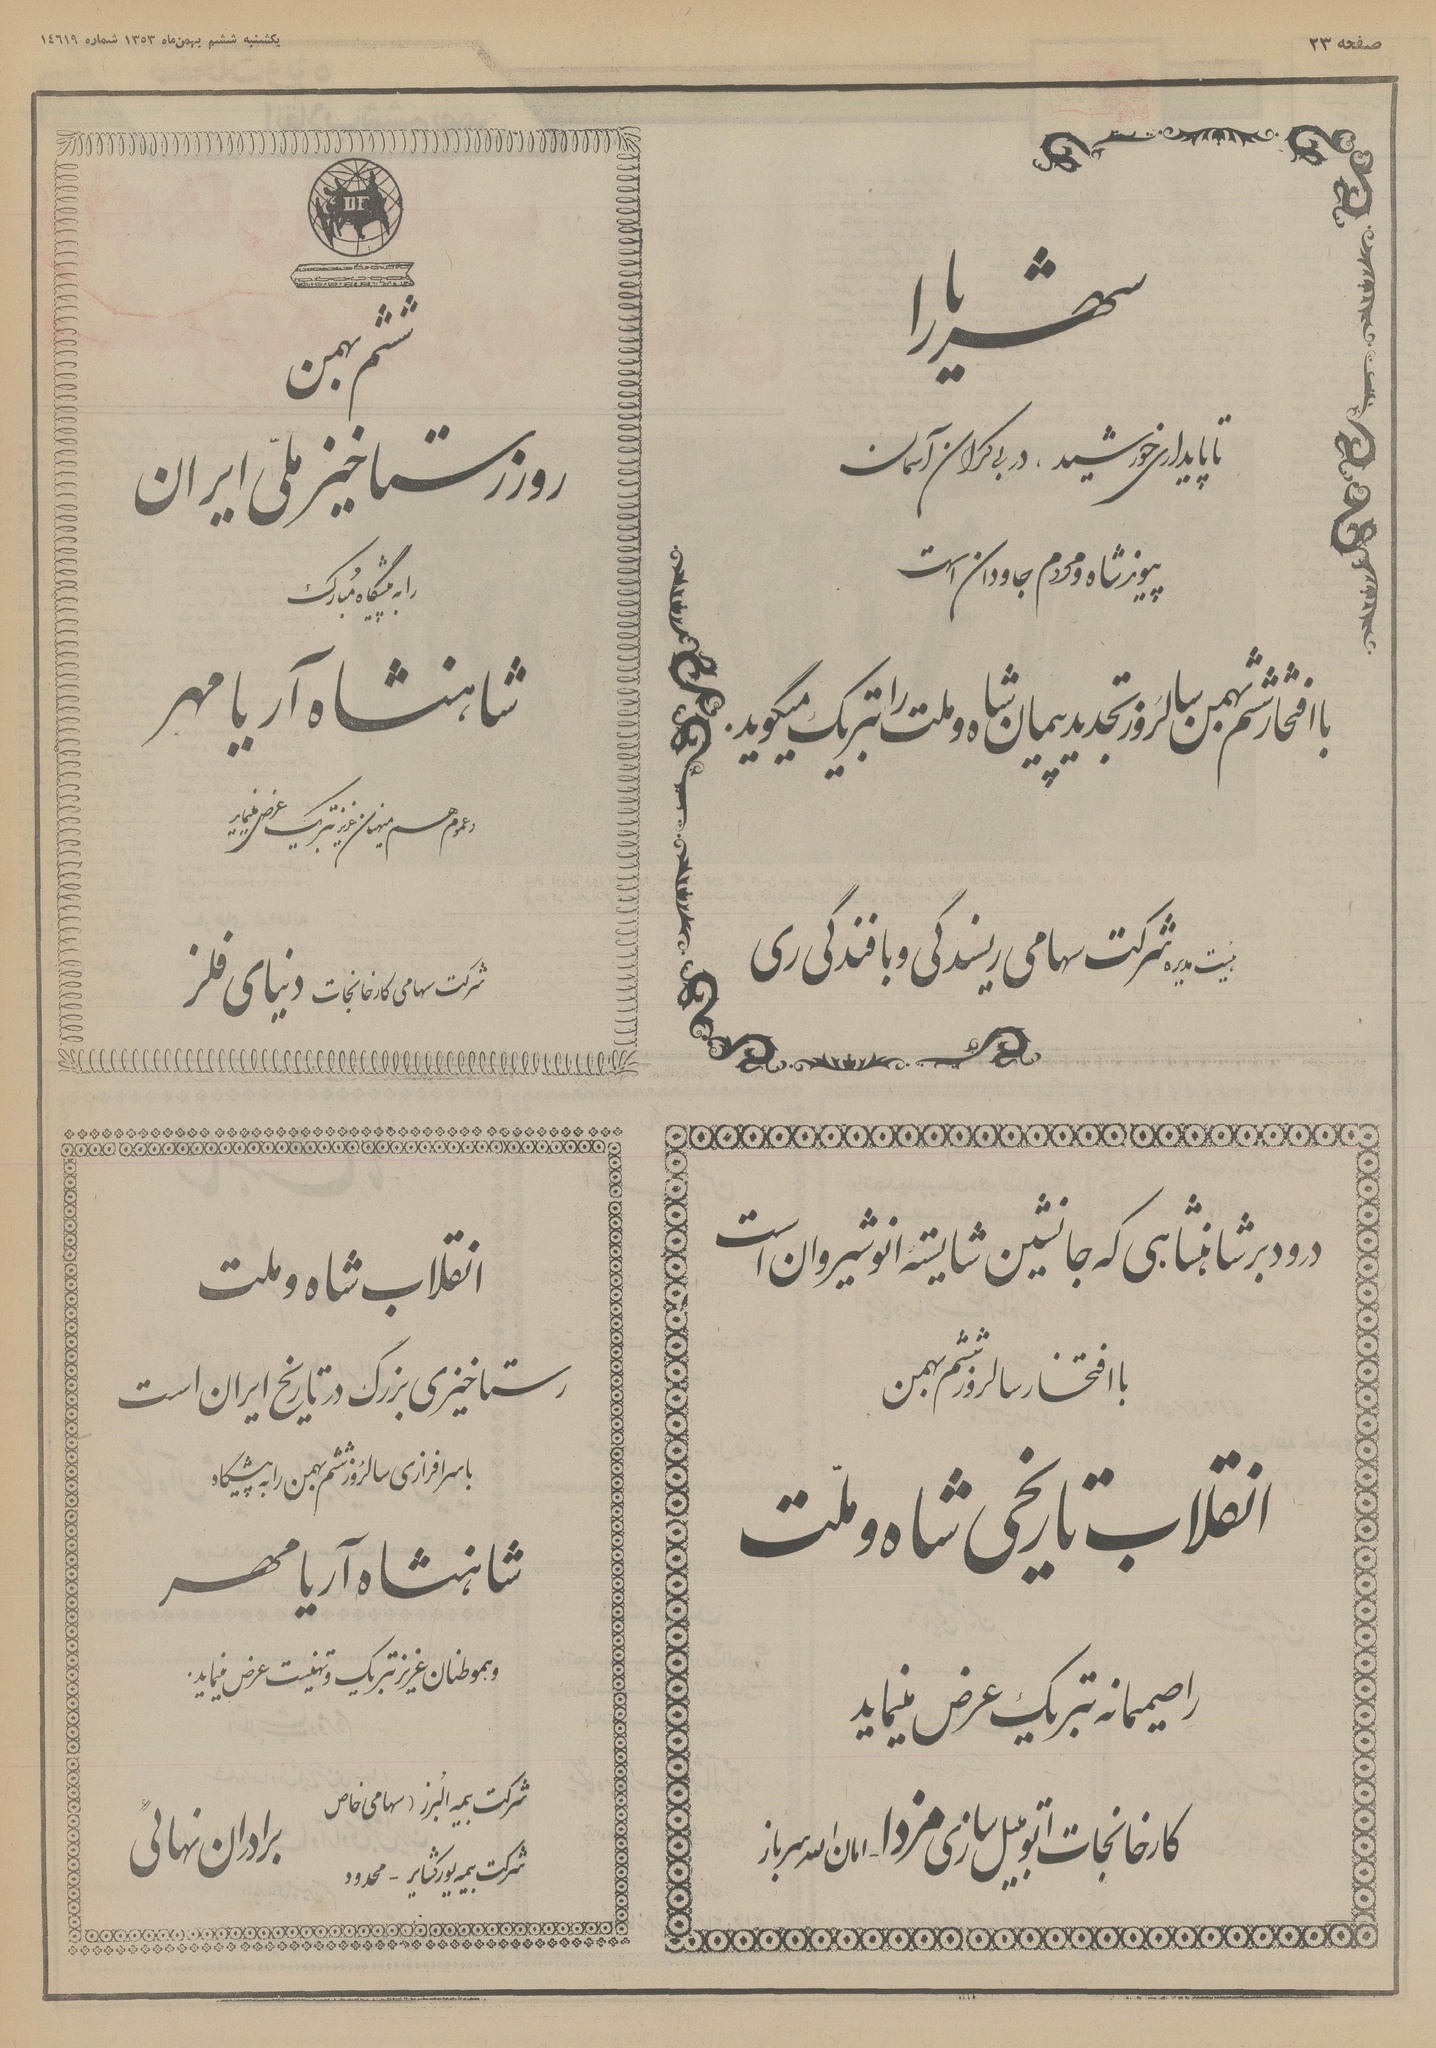 صفحه ۲۳
یکشنبه ششم بهمن‌ماه ۱۳۵۳ شماره ۱٤٦۱۹
شهریارا
تا پایداری خورشید، در بی‌کران آسمان
پیوند شاه و مردم جاودان است
با افتخار ششم بهمن سالروز تجدید پیمان شاه و ملت را تبریک میگوید.
هیئت مدیره شرکت سهامی ریسندگی و بافندگی ری
ششم بهمن
روز رستاخیز ملّی ایران
را به پیشگاه مُبارک
شاهنشاه آریامهر
و عموم هم میهنان عزیز تبریک عرض مینماید
شرکت سهامی کارخانجات دنیای فلز
درود بر شاهنشاهی که جانشین شایستهٔ انوشیروان است
با افتخار سالروز ششم بهمن
انقلاب تاریخی شاه و ملّت
را صمیمانه تبریک عرض مینماید
کارخانجات اتومبیل سازی مزدا - امان الله سرباز
انقلاب شاه و ملت
رستاخیزی بزرگ در تاریخ ایران است
با سرافرازی سالروز ششم بهمن را به پیشگاه
شاهنشاه آریامهر
و هموطنان عزیز تبریک و تهنیت عرض مینماید.
شرکت بیمه البرز (سهامی خاص
شرکت بیمه یورکشایر - محدود
برادران نهائی